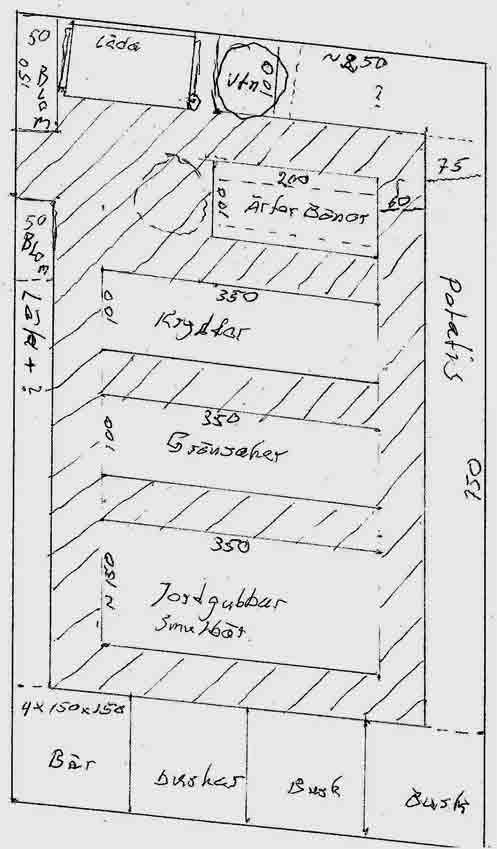 50
150
BLOM
Låda
Vtn
100
~250
?
75
200
50
100
Ärtor Bönor
50
BLOM
Lök + ?
350
100
Kryddor
350
100
Grönsaker
350
~150
Jordgubbar
Smultbär
Potatis
150
4x150x150
Bär
buskar
Busk
Busk